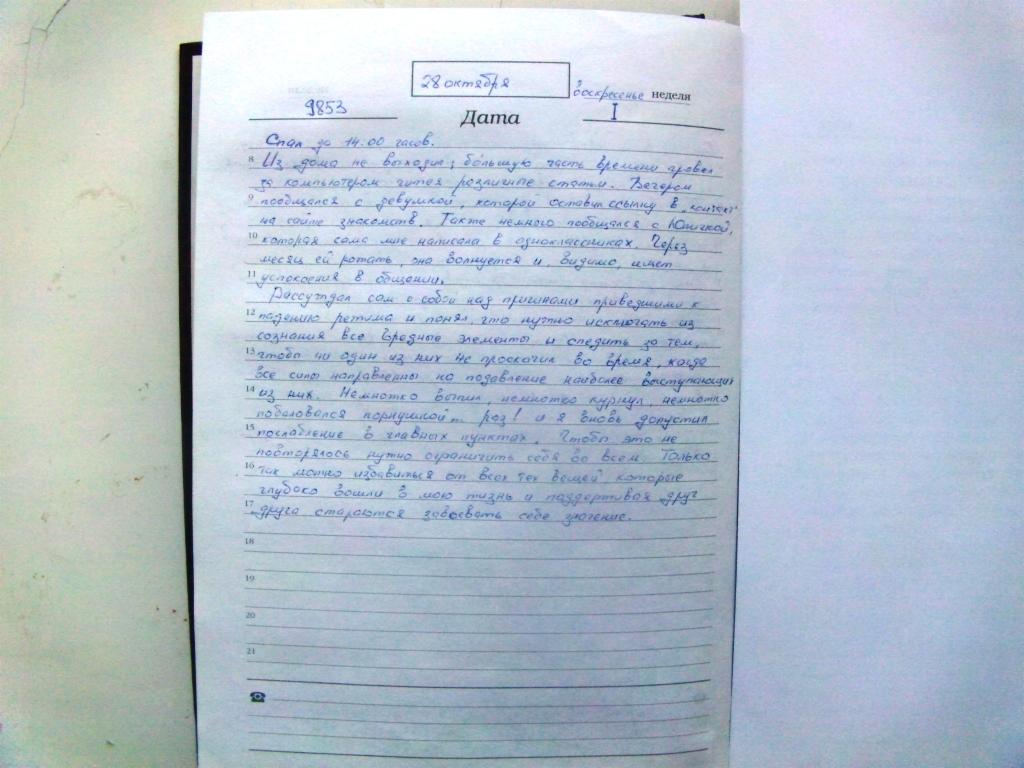 28 октября
воскресенье недели
9853
Дата
I
Спал до 14.00 часов.
8 Из дома не выходил; бо́льшую часть времени провел
за компьютером читая различные статьи. Вечером
9 пообщался с девушкой, которой оставил ссылку в „контакт"
на сайте знакомств. Также немного пообщался с Юличкой,
10 которая сама мне написала в одноклассниках. Через
месяц ей рожать, она волнуется и, видимо, ищет
11 успокоения в общении.
Рассуждал сам с собой над причинами приведшими к
12 падению режима и понял, что нужно исключать из
сознания все вредные элементы и следить за тем,
13 чтобы ни один из них не проскочил во время, когда
все силы направленны на подавление наиболее выступающих
14 из них. Немножко выпил, немножко курнул, немножко
побаловался порнушкой... раз! и я вновь допустил
15 послабление в главных пунктах. Чтобы это не
повторялось нужно ограничить себя во всем. Только
16 так можно избавиться от всех тех вещей, которые
глубоко вошли в мою жизнь и поддерживая друг
17 друга стараются завоевать себе значение.
18
19
20
21